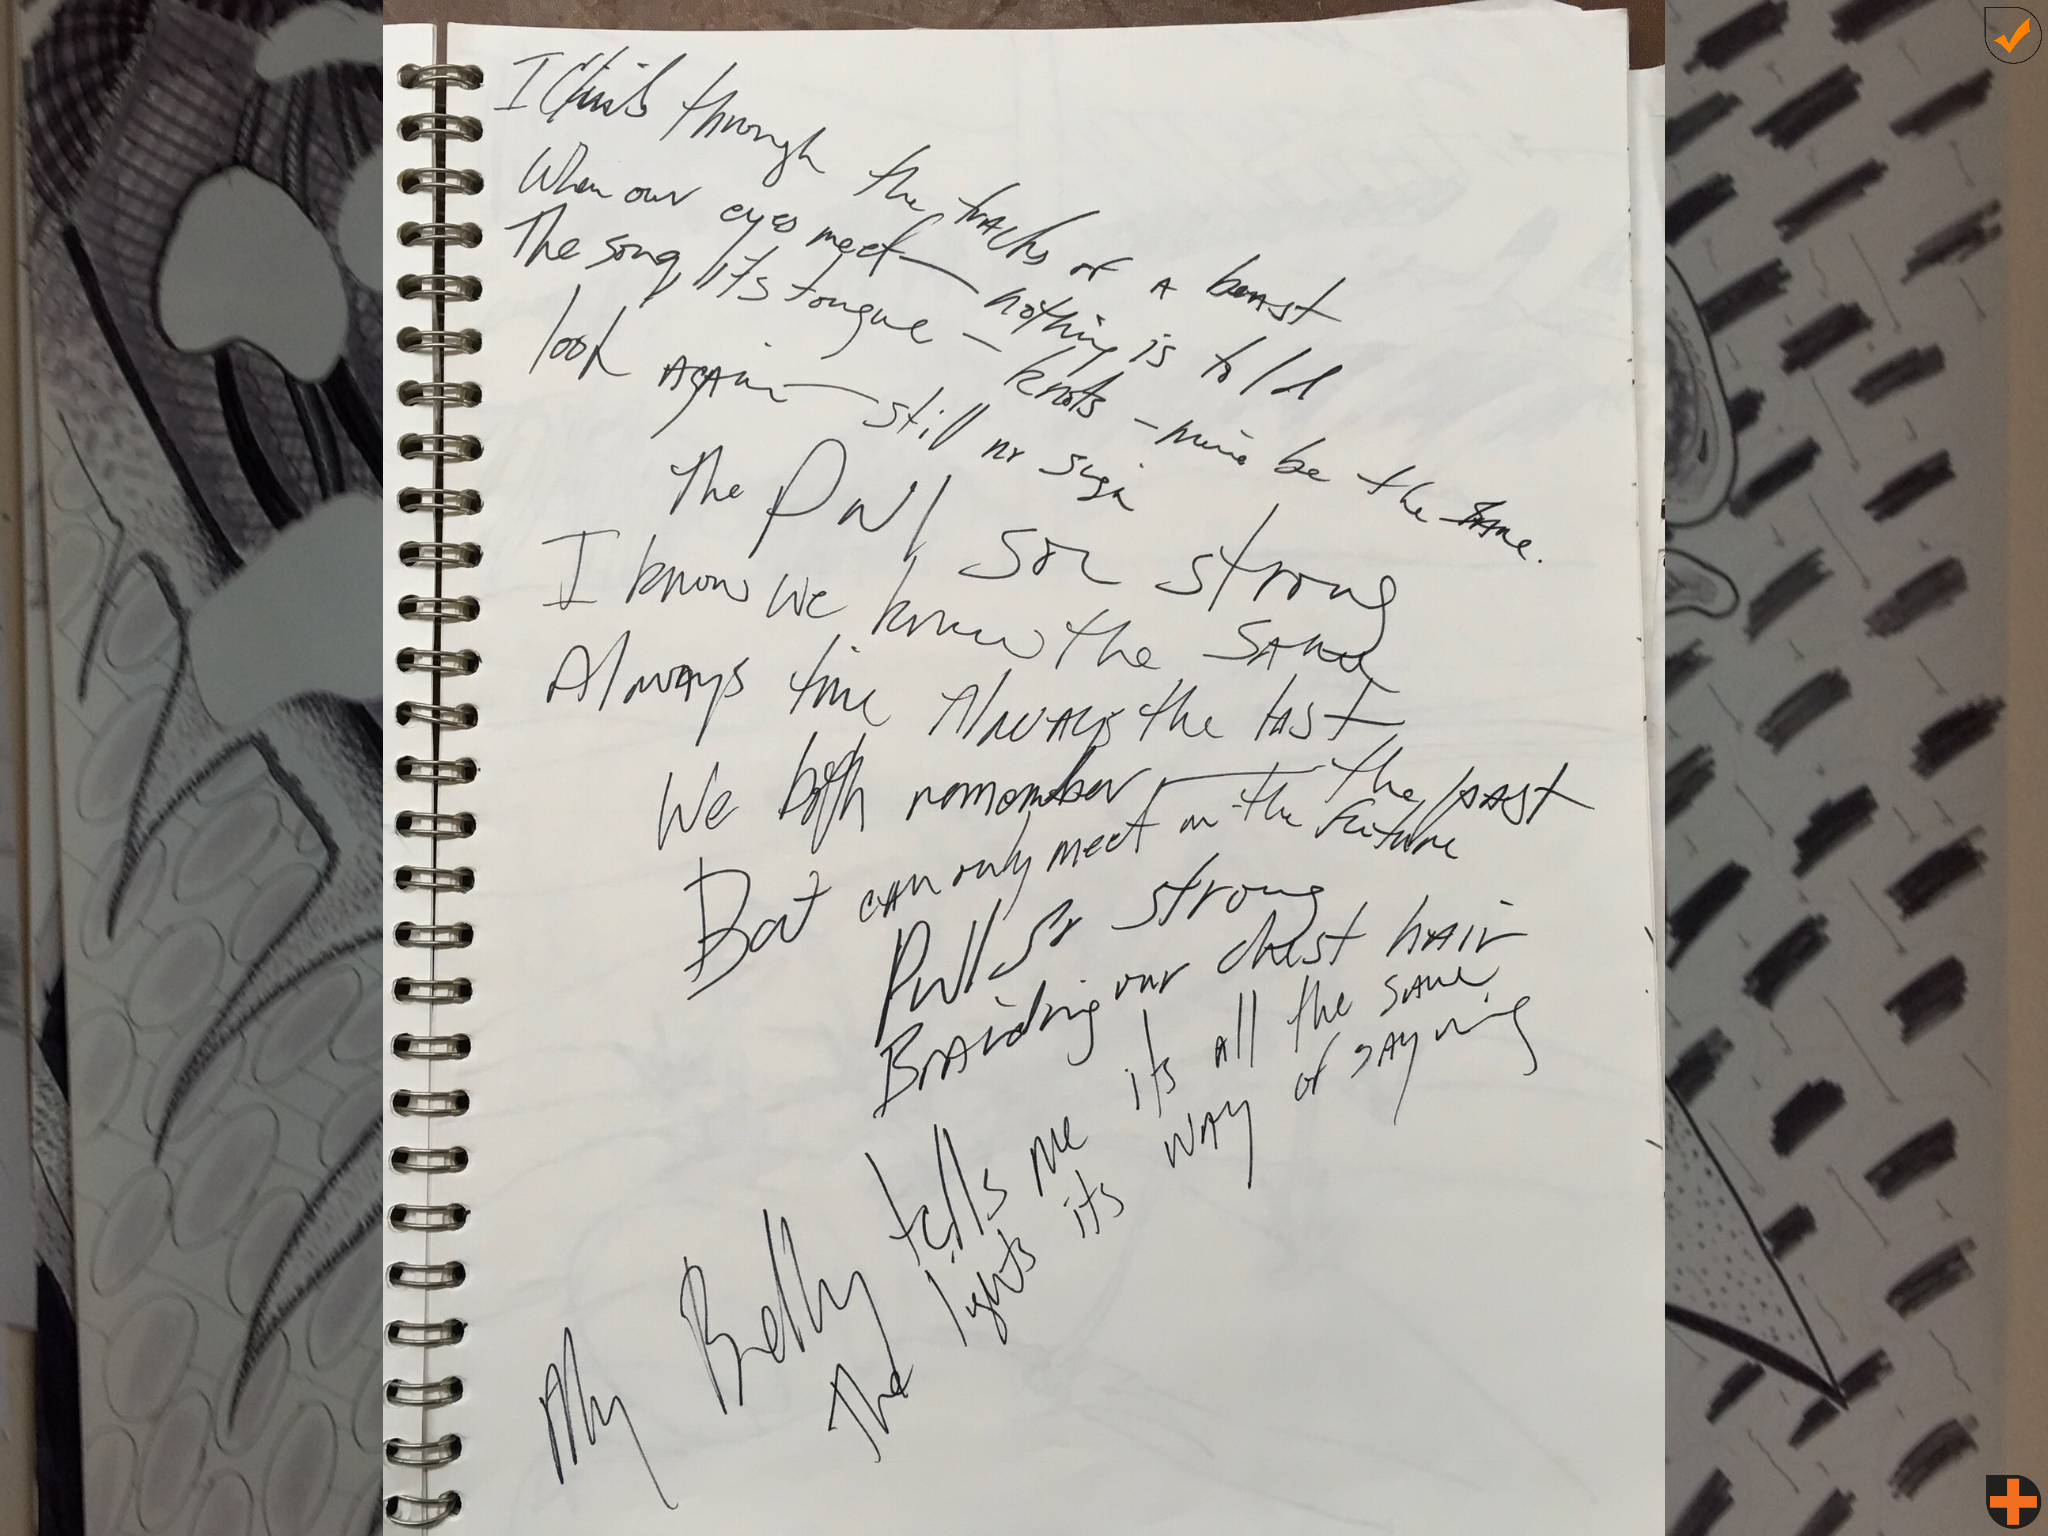 I climb through the tracks of a beast
When our eyes meet — nothing is told
The song, its tongue – knots – mine be the same.
look again — still no sign
The Pull so strong
I know we knew the same
Always time Always the last
We both remember — the past
But can only meet in the future
Pull so strong
Braiding our chest hair
My Belly tells me its all the same
The lights its way of saying